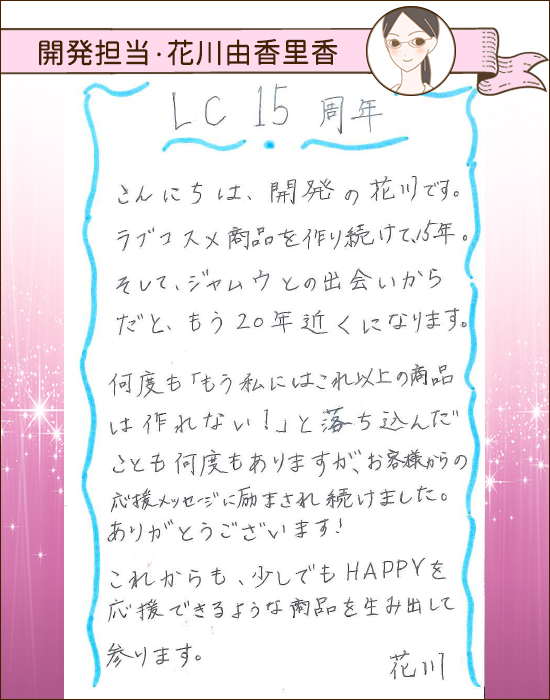 開発担当・花川由香里香
LC 15 周年
こんにちは、開発の花川です。
ラブコスメ商品を作り続けて、15年。
そして、ジャムウとの出会いから
だと、もう20年近くになります。
何度も「もう私にはこれ以上の商品
は作れない!」と落ち込んだ
ことも何度もありますが、お客様からの
応援メッセージに励まされ続けました。
ありがとうございます!
これからも、少しでもHAPPYを
応援できるような商品を生み出して
参ります。
花川